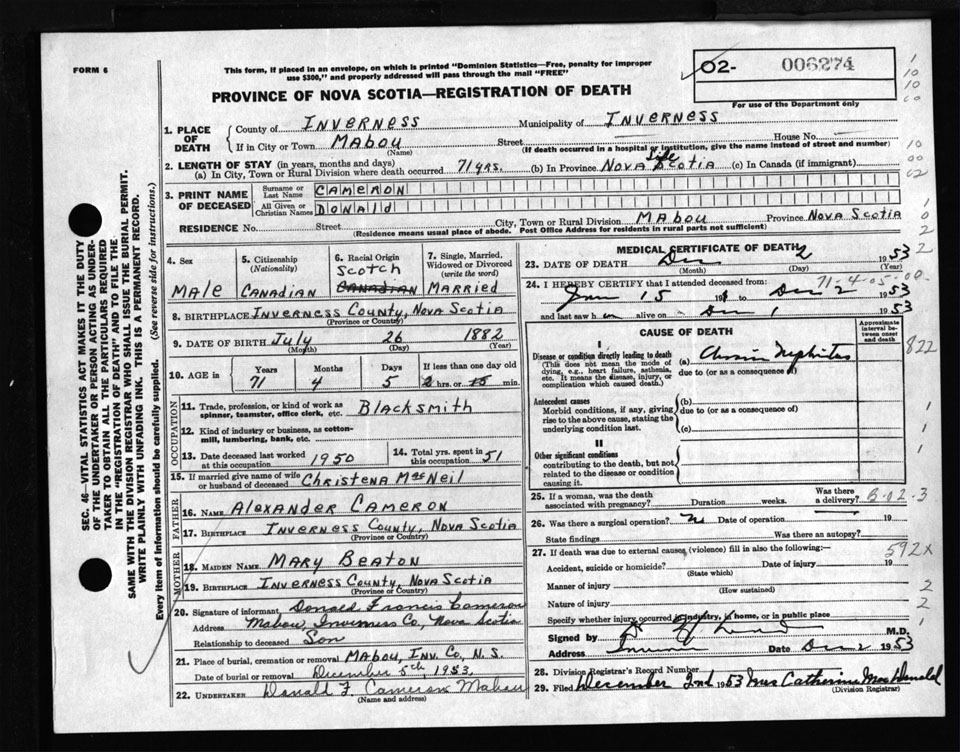 FORM 6
This form, if placed in an envelope, on which is printed "Dominion Statistics—Free, penalty for improper
use $300," and properly addressed will pass through the mail "FREE"
PROVINCE OF NOVA SCOTIA—REGISTRATION OF DEATH
02- 006274
For use of the Department only
1. PLACE OF DEATH
County of INVERNESS Municipality of INVERNESS
If in City or Town MABOU (Name) Street House No.
(If death occurred in a hospital or institution, give the name instead of street and number)
2. LENGTH OF STAY (in years, months and days)
(a) In City, Town or Rural Division where death occurred 71 yrs. (b) In Province Life NOVA SCOTIA (c) In Canada (if immigrant)
3. PRINT NAME OF DECEASED
Surname or Last Name CAMERON
All Given or Christian Names DONALD
RESIDENCE No. Street City, Town or Rural Division MABOU Province NOVA SCOTIA
(Residence means usual place of abode. Post Office Address for residents in rural parts not sufficient)
4. Sex MALE
5. Citizenship (Nationality) CANADIAN
6. Racial Origin SCOTCH CANADIAN
7. Single, Married, Widowed or Divorced (write the word) MARRIED
8. BIRTHPLACE INVERNESS COUNTY, NOVA SCOTIA
(Province or Country)
9. DATE OF BIRTH July 26 1882
(Month) (Day) (Year)
10. AGE in Years 71 Months 4 Days 5 If less than one day old hrs. or min.
OCCUPATION
11. Trade, profession, or kind of work as spinner, teamster, office clerk, etc. BLACKSMITH
12. Kind of industry or business, as cotton-mill, lumbering, bank, etc.
13. Date deceased last worked at this occupation 1950
14. Total yrs. spent in this occupation 51
15. If married give name of wife or husband of deceased CHRISTENA MacNEIL
FATHER
16. NAME ALEXANDER CAMERON
17. BIRTHPLACE INVERNESS COUNTY, NOVA SCOTIA
(Province or Country)
MOTHER
18. MAIDEN NAME MARY BEATON
19. BIRTHPLACE INVERNESS COUNTY, NOVA SCOTIA
(Province or Country)
20. Signature of informant Donald Francis Cameron
Address Mabou, Inverness Co, Nova Scotia
Relationship to deceased Son
21. Place of burial, cremation or removal MABOU, INV. CO, N. S.
Date of burial or removal December 5th, 1953.
22. UNDERTAKER Donald F. Cameron Mabou
(Name and address)
MEDICAL CERTIFICATE OF DEATH
23. DATE OF DEATH Dec 2 1953
(Month) (Day) (Year)
24. I HEREBY CERTIFY that I attended deceased from: 71-4-05-00
Jan 15 to Dec 2 1953
and last saw h alive on Dec 1 1953
CAUSE OF DEATH
Approximate interval between onset and death
I
Disease or condition directly leading to death (a) Chronic Nephritis
(This does not mean the mode of dying, e.g., heart failure, asthenia, etc. It means the disease, injury, or complication which caused death.)
due to (or as a consequence of)
Antecedent causes (b)
Morbid conditions, if any, giving rise to the above cause, stating the underlying condition last.
due to (or as a consequence of)
(c)
II
Other significant conditions
contributing to the death, but not related to the disease or condition causing it.
25. If a woman, was the death associated with pregnancy? Duration weeks. Was there a delivery?
26. Was there a surgical operation? Date of operation 19
State findings Was there an autopsy?
27. If death was due to external causes (violence) fill in also the following:—
Accident, suicide or homicide? Date of injury 19
(State which)
Manner of injury
(How sustained)
Nature of injury
Specify whether injury occurred in industry, in home, or in public place
Signed by M.D.
Address Date Dec 2 1953
28. Division Registrar's Record Number
29. Filed December 2nd 1953 Mrs Catherine MacDonald
(Division Registrar)
822
B-02-3
592X
SEC. 46—VITAL STATISTICS ACT MAKES IT THE DUTY
OF THE UNDERTAKER OR PERSON ACTING AS UNDER-
TAKER TO OBTAIN ALL THE PARTICULARS REQUIRED
IN THE "REGISTRATION OF DEATH" AND TO FILE THE
SAME WITH THE DIVISION REGISTRAR WHO SHALL ISSUE THE BURIAL PERMIT.
WRITE PLAINLY WITH UNFADING INK. THIS IS A PERMANENT RECORD.
Every item of information should be carefully supplied. (See reverse side for instructions.)